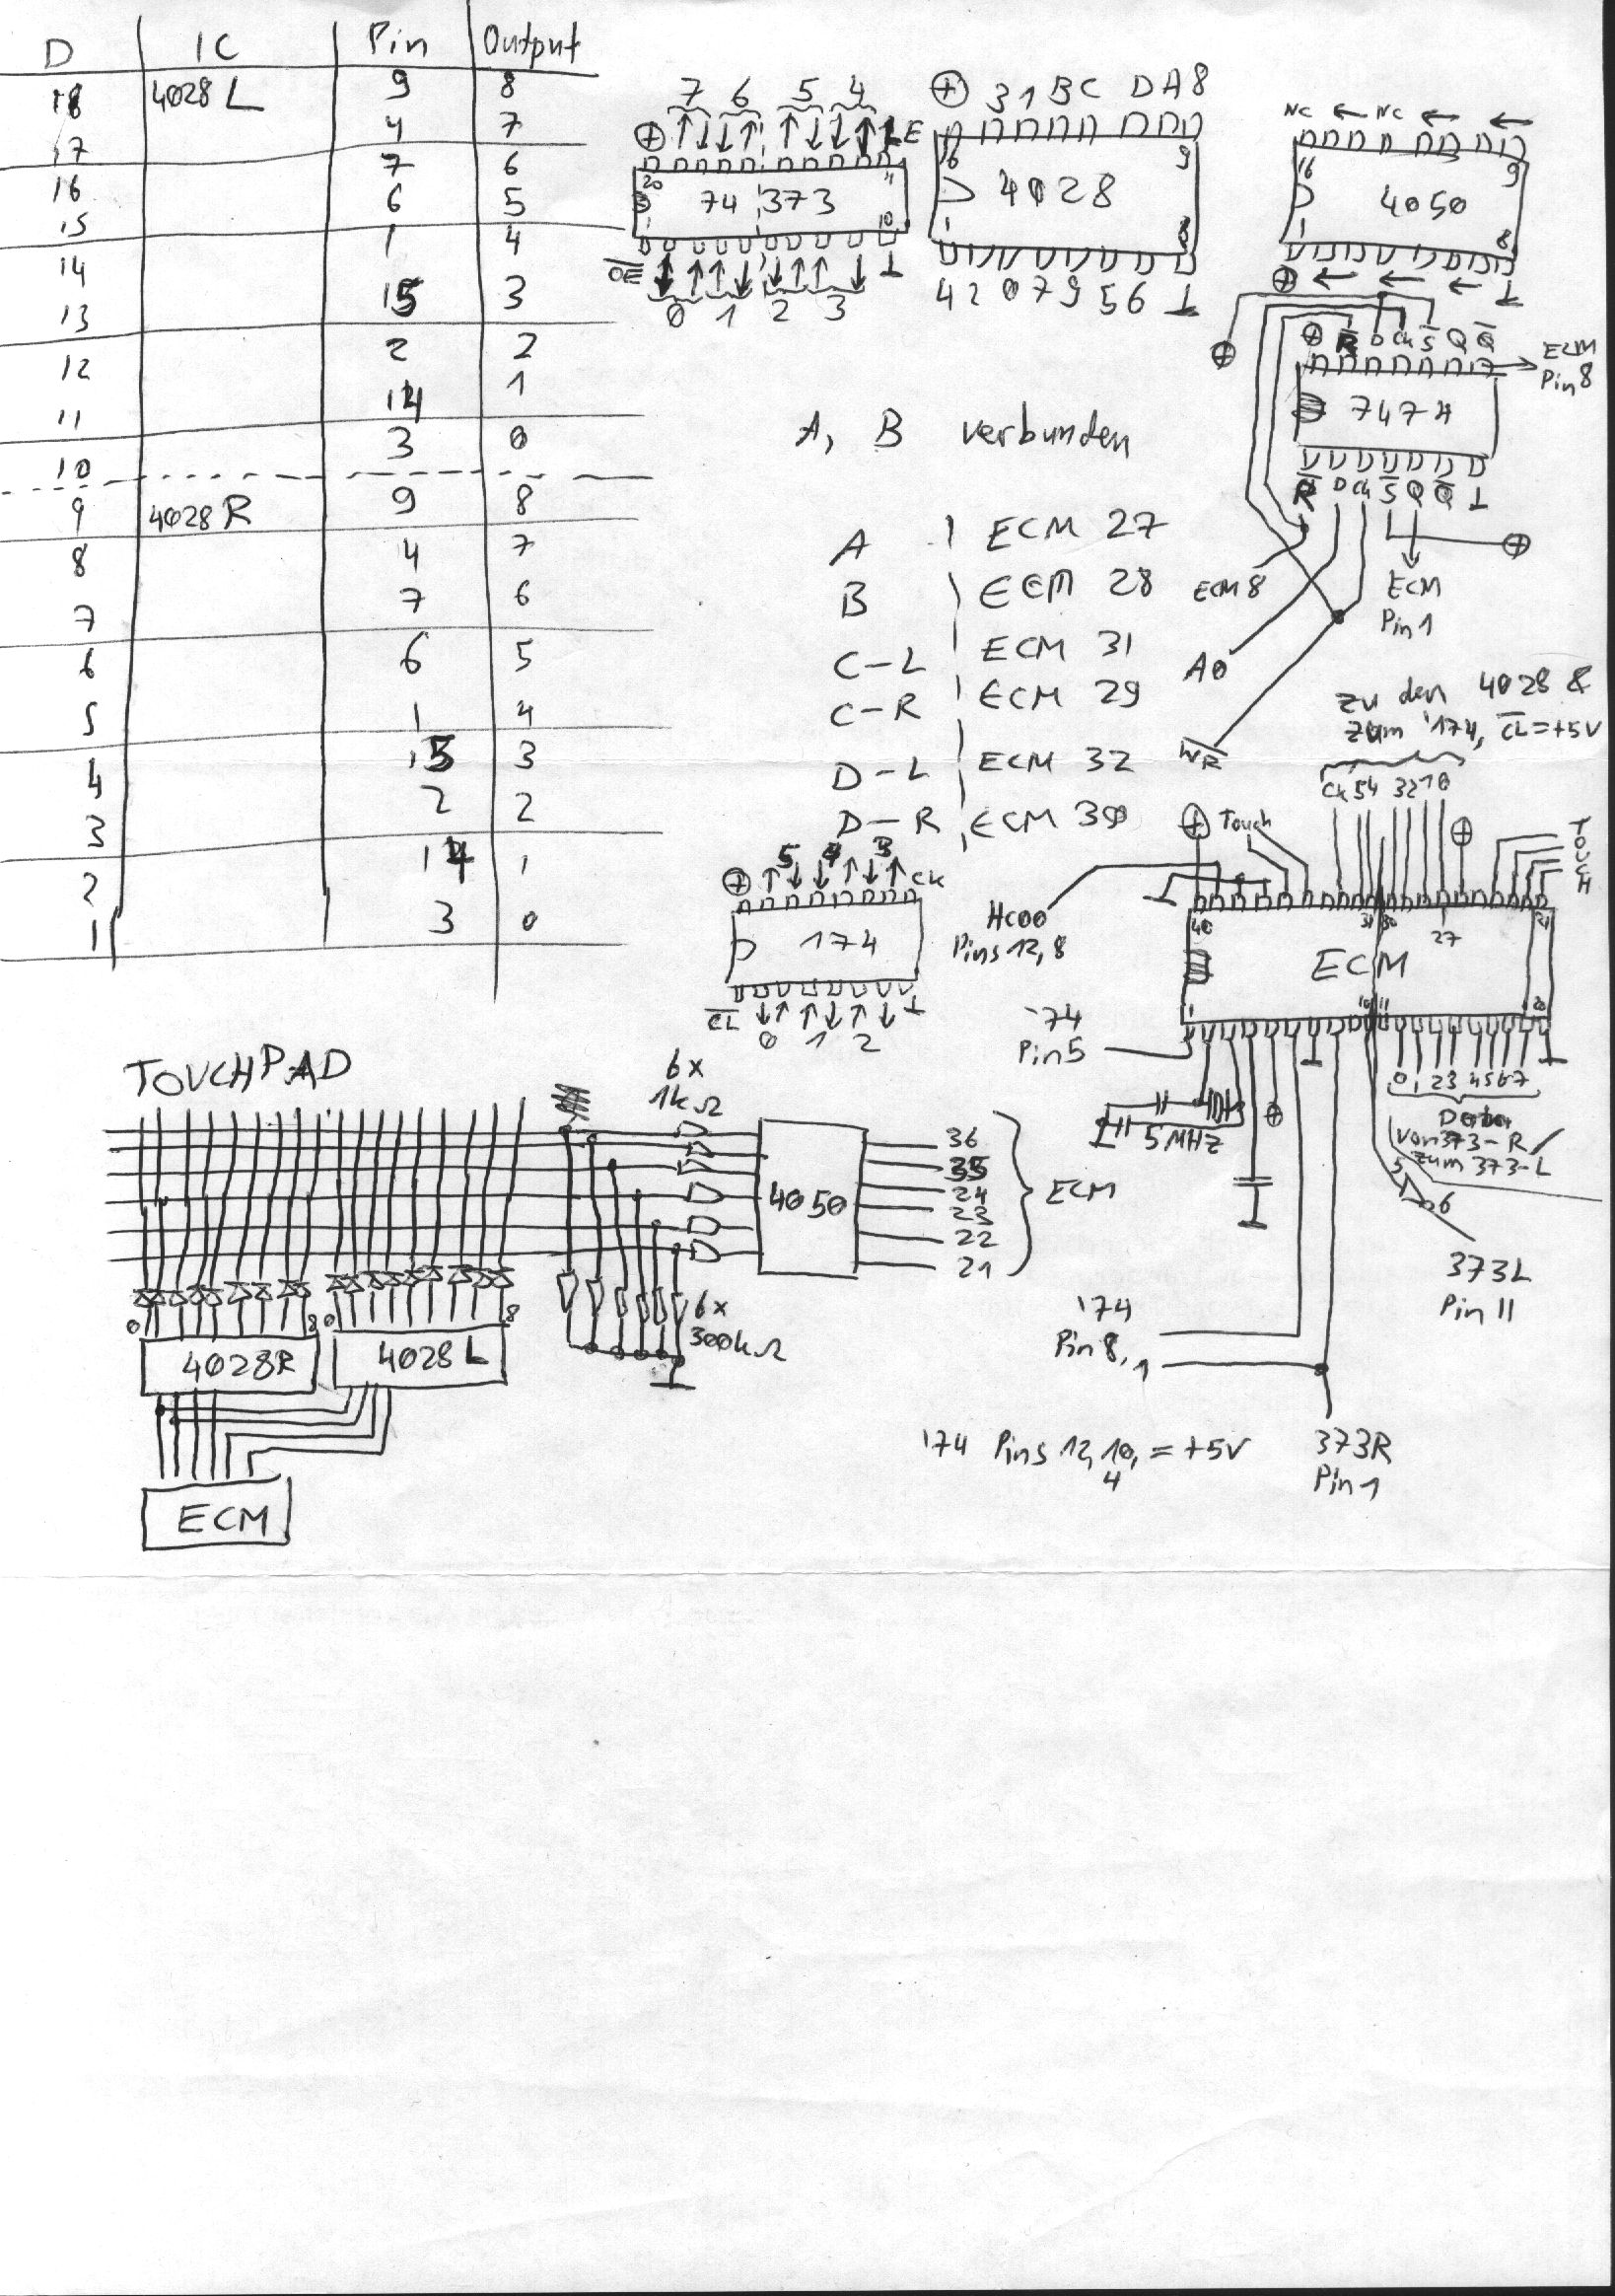 D IC Pin Output
18 4028 L 9 8
17 4 7
16 7 6
15 6 5
14 1 4
13 15 3
12 2 2
11 14 1
10 3 0
9 4028 R 9 8
8 4 7
7 7 6
6 6 5
5 1 4
4 15 3
3 2 2
2 14 1
1 3 0
7 6 5 4
LE
20 11
74 373
1 10
OE
0 1 2 3
31BC DA8
16 9
4028
1 8
4 2 0 7 9 5 6
NC NC
16 9
4050
1 8
R D Ck S Q Q
ECM
Pin 8
7474
R D Ck S Q Q
ECM 8
ECM
Pin 1
A0
WR
A, B verbunden
A ECM 27
B ECM 28
C-L ECM 31
C-R ECM 29
D-L ECM 32
D-R ECM 30
5 4 3
CK
174
CL
0 1 2
zu den 4028 &
zum '174, CL=+5V
Ck 54 3210
Touch
TOUCH
HC00
Pins 12, 8
40 31 30 27 21
ECM
1 10 11 20
'74
Pin 5
5 MHZ
0 1 2 3 4 5 6 7
Daten
von 373-R
zum 373-L
5
6
373L
Pin 11
'174
Pin 8, 1
373R
Pin 1
'174 Pins 12, 10, = +5V
4
TOUCHPAD
6x
1kΩ
4050
36
35
24
23
22
21
ECM
6x
300kΩ
0 8 0 8
4028R 4028L
ECM